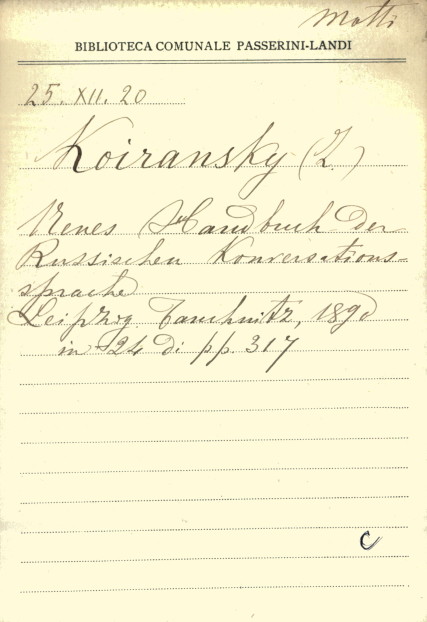 Motti
BIBLIOTECA COMUNALE PASSERINI-LANDI
25. XII. 20
Koiransky (I.)
Neues Handbuch der
Russischen Konversations-
sprache
Leipzig Tauchnitz, 1890
in 24 di pp. 317
C